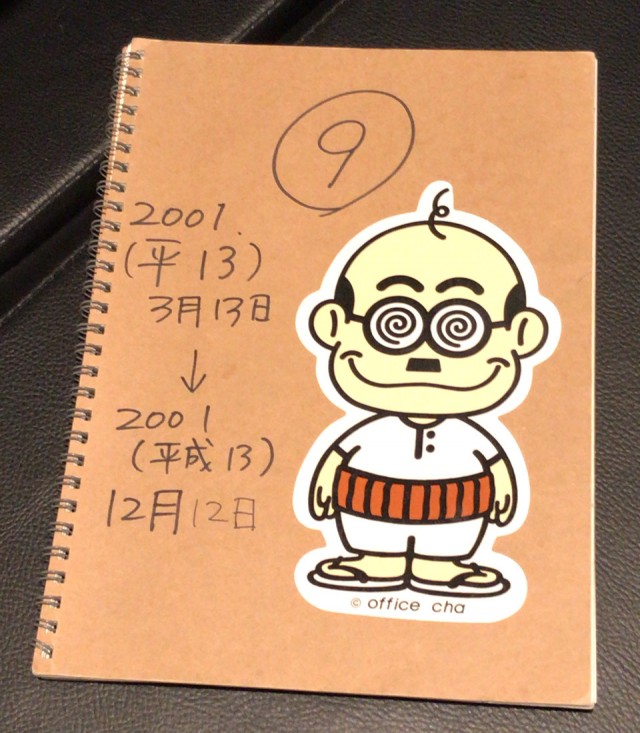 9
2001.
(平13)
3月13日
↓
2001
(平成13)
12月12日
© office cha